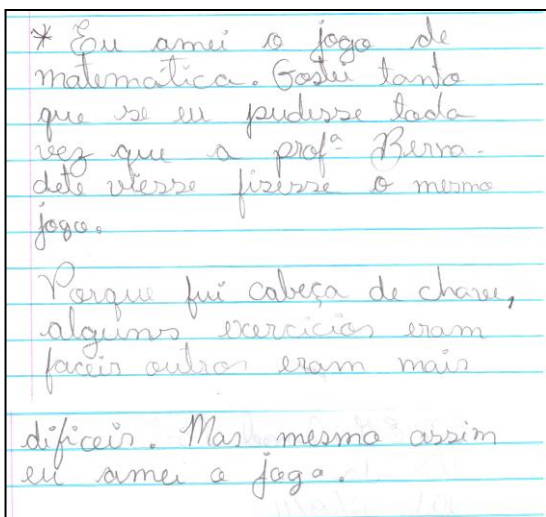 * Eu amei o jogo de
matemática. Gostei tanto
que se eu pudesse toda
vez que a profª Berna-
dete viesse fizesse o mesmo
jogo.
Porque fui cabeça de chave,
alguns exercicios eram
faceis outros eram mais
dificeis. Mas mesmo assim
eu amei o jogo.